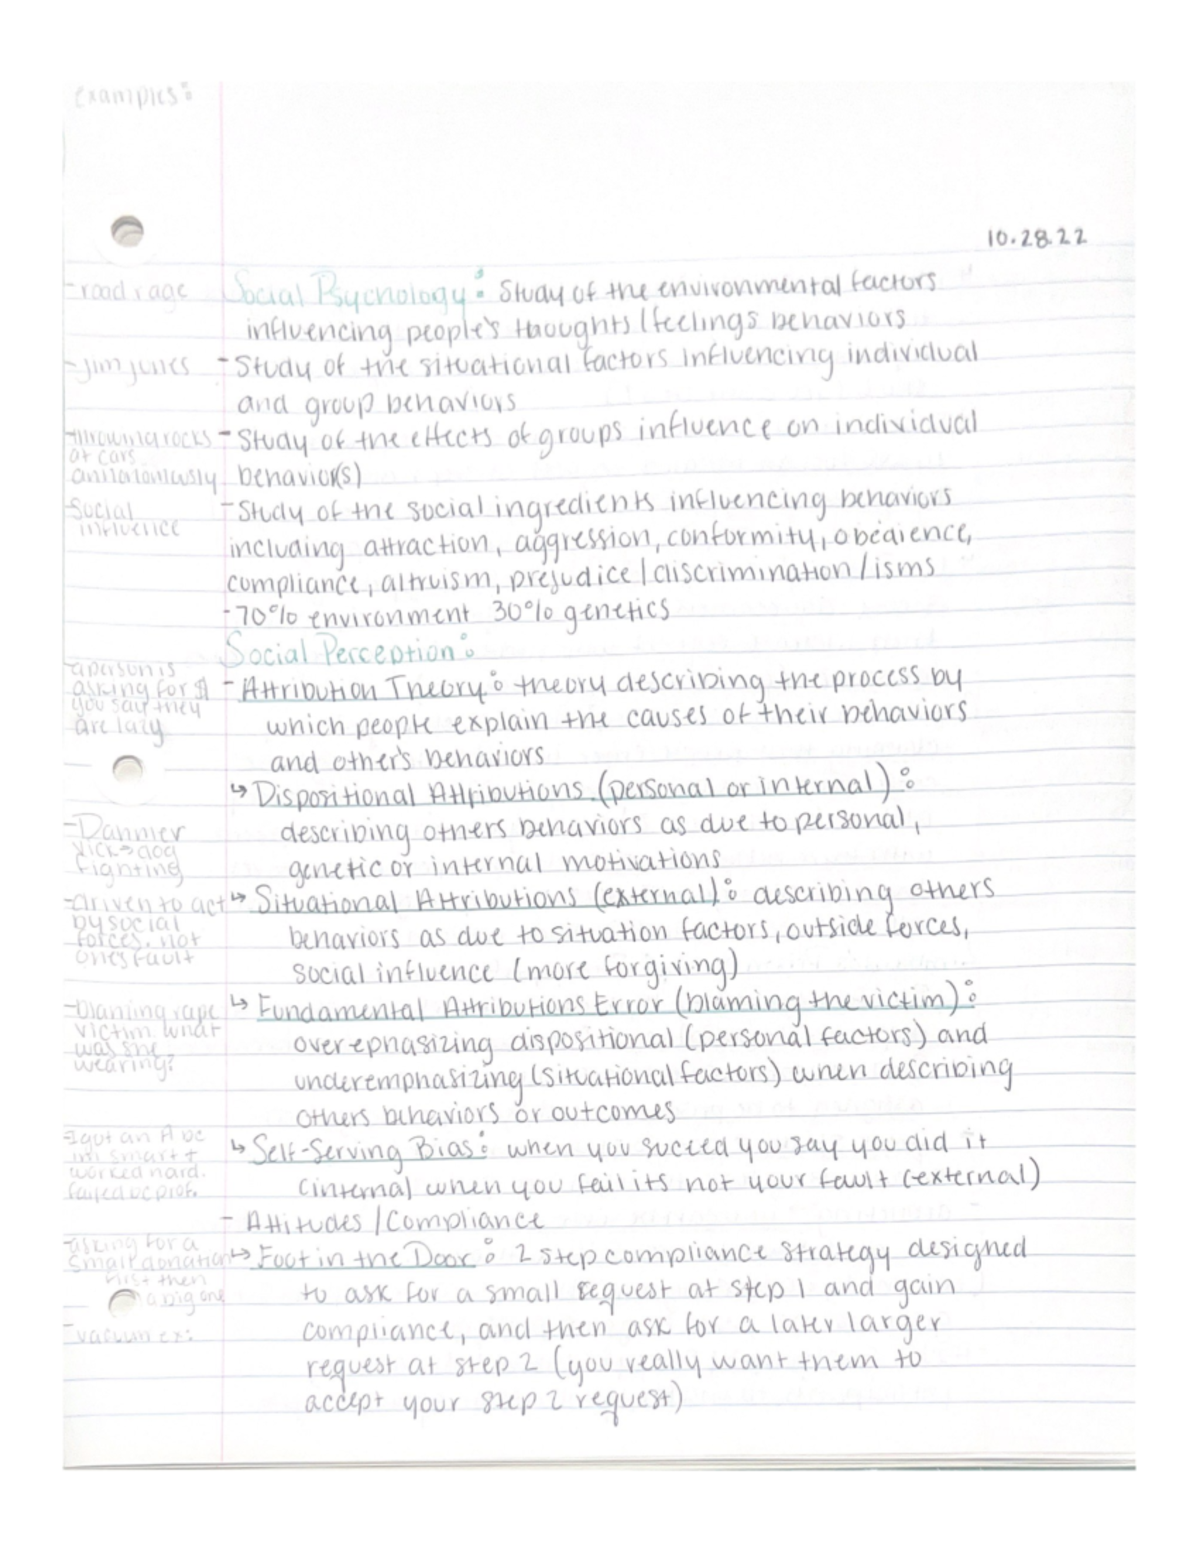 examples:
10.28.22
-road rage
Social Psychology: Study of the environmental factors
influencing people's thoughts/feelings behaviors
-Jim Jones
-Study of the situational factors influencing individual
and group behaviors
-throwing rocks
at cars
-Study of the effects of groups influence on individual
behavior(s)
Social
influence
-Study of the social ingredients influencing behaviors
including attraction, aggression, conformity, obedience,
compliance, altruism, prejudice/discrimination/isms
-70% environment 30% genetics
Social Perception:
-a person is
asking for $
you say they
are lazy
-Attribution Theory: theory describing the process by
which people explain the causes of their behaviors
and other's behaviors
↳ Dispositional Attributions (personal or internal):
describing others behaviors as due to personal,
genetic or internal motivations
-Dahmer
Vick→dog
fighting
-driven to act
by social
forces, not
ones fault
↳ Situational Attributions (external): describing others
behaviors as due to situation factors, outside forces,
social influence (more forgiving)
-blaming rape
victim what
was she
wearing?
↳ Fundamental Attributions Error (blaming the victim):
overephasizing dispositional (personal factors) and
underemphasizing (situational factors) when describing
others behaviors or outcomes
-I got an A bc
im smart +
worked hard.
failed bc prof.
↳ Self-Serving Bias: when you succeed you say you did it
(internal when you fail its not your fault (external)
- Attitudes/Compliance
-asking for a
small donation
first then
a big one
-vacuum ex:
↳ Foot in the Door: 2 step compliance strategy designed
to ask for a small request at step 1 and gain
compliance, and then ask for a later larger
request at step 2 (you really want them to
accept your step 2 request)